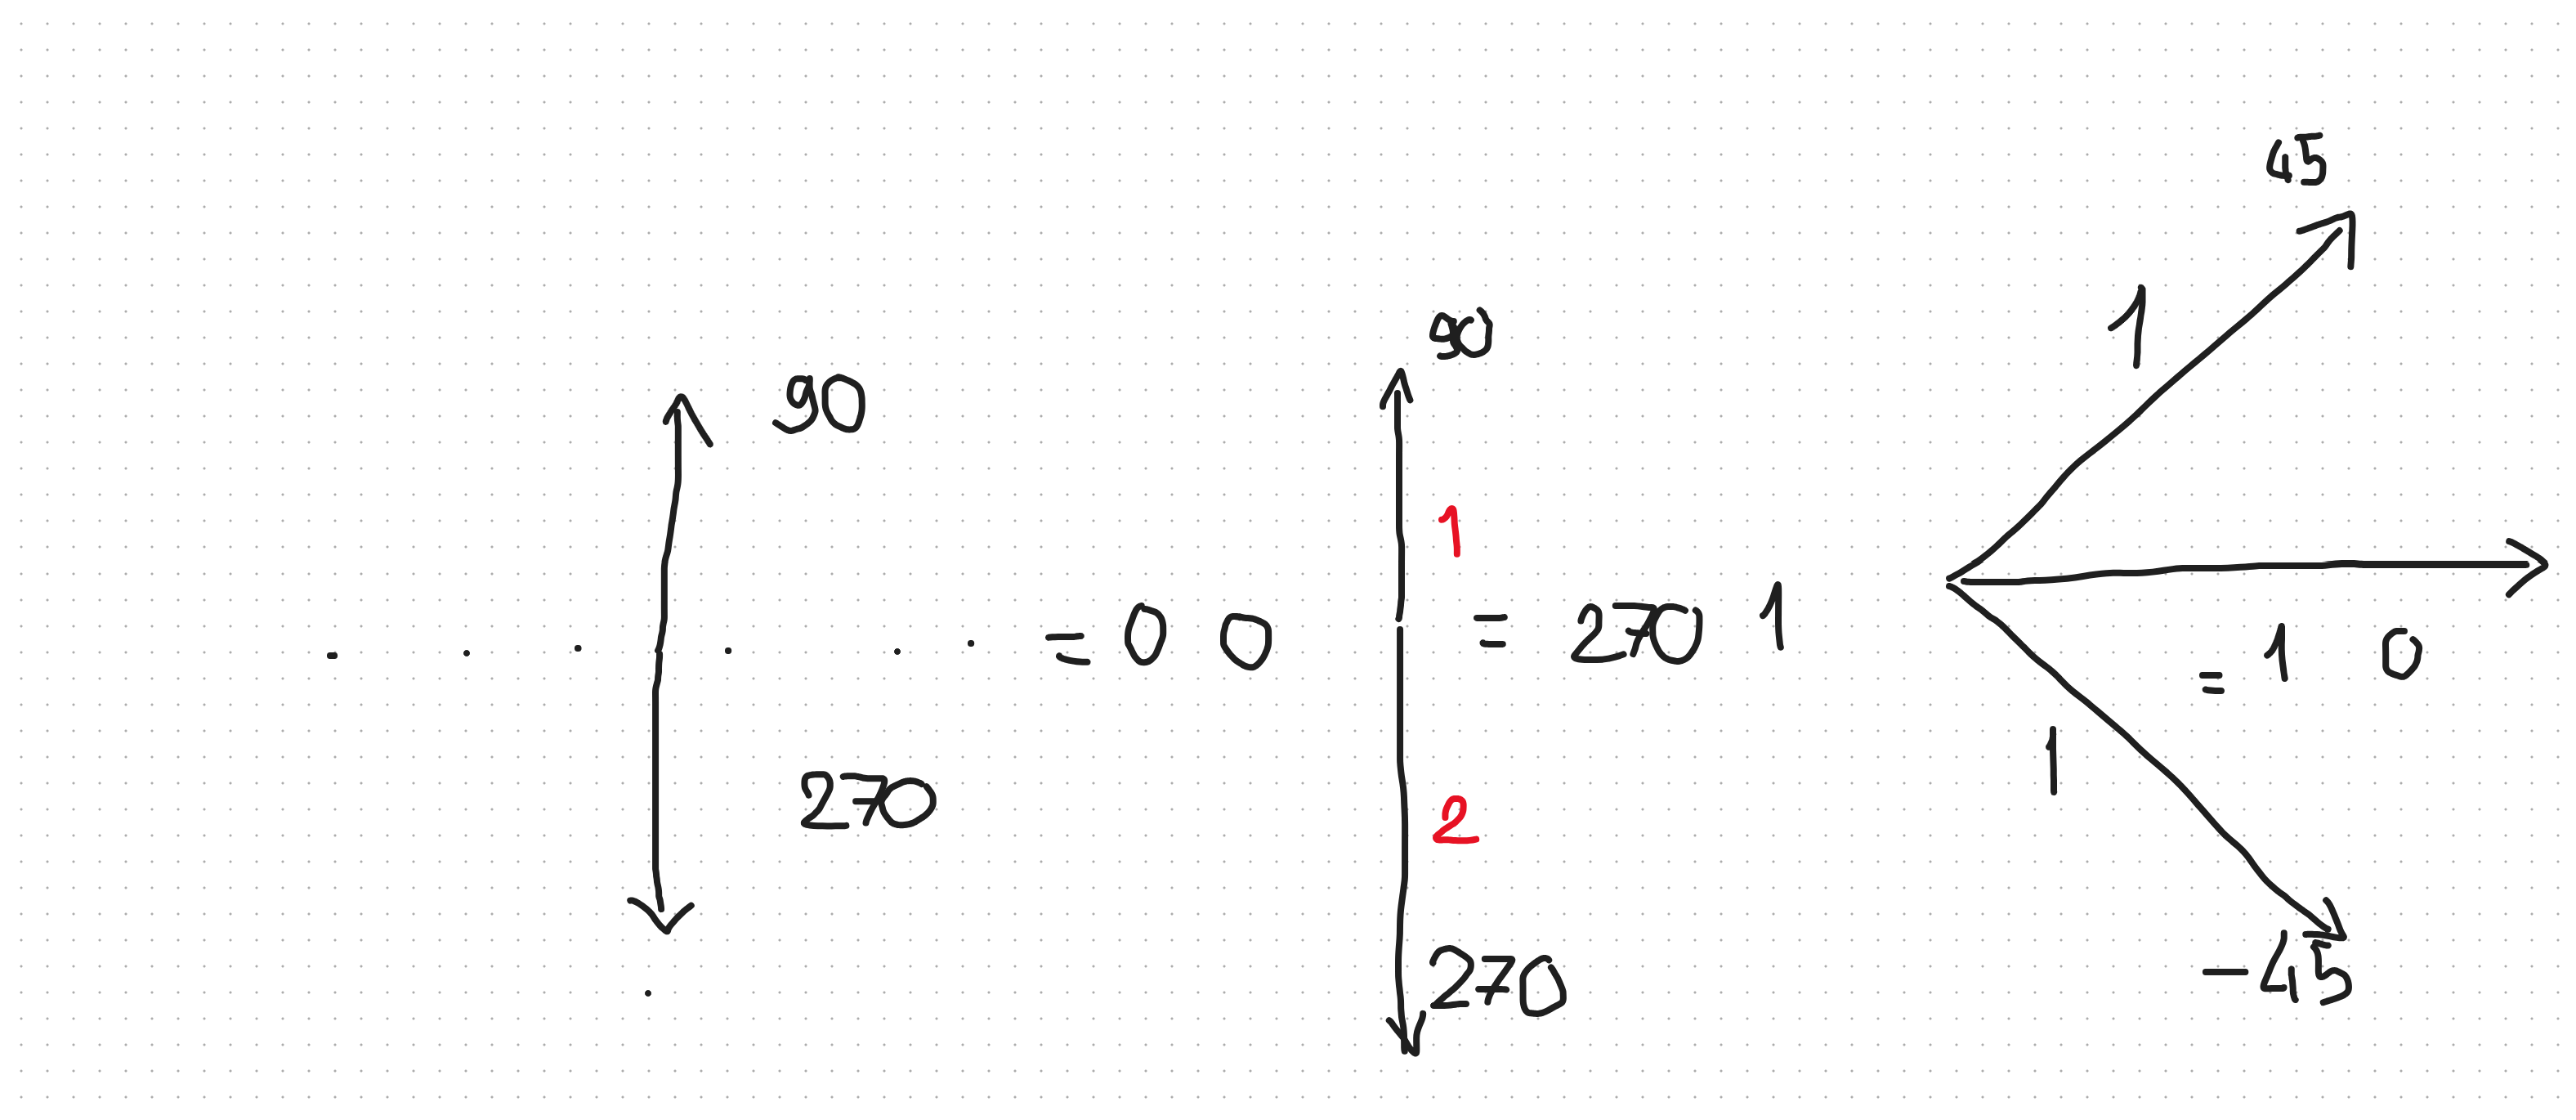 90
270
= 0 0
90
1
2
270
= 270 1
45
1
= 1 0
1
-45